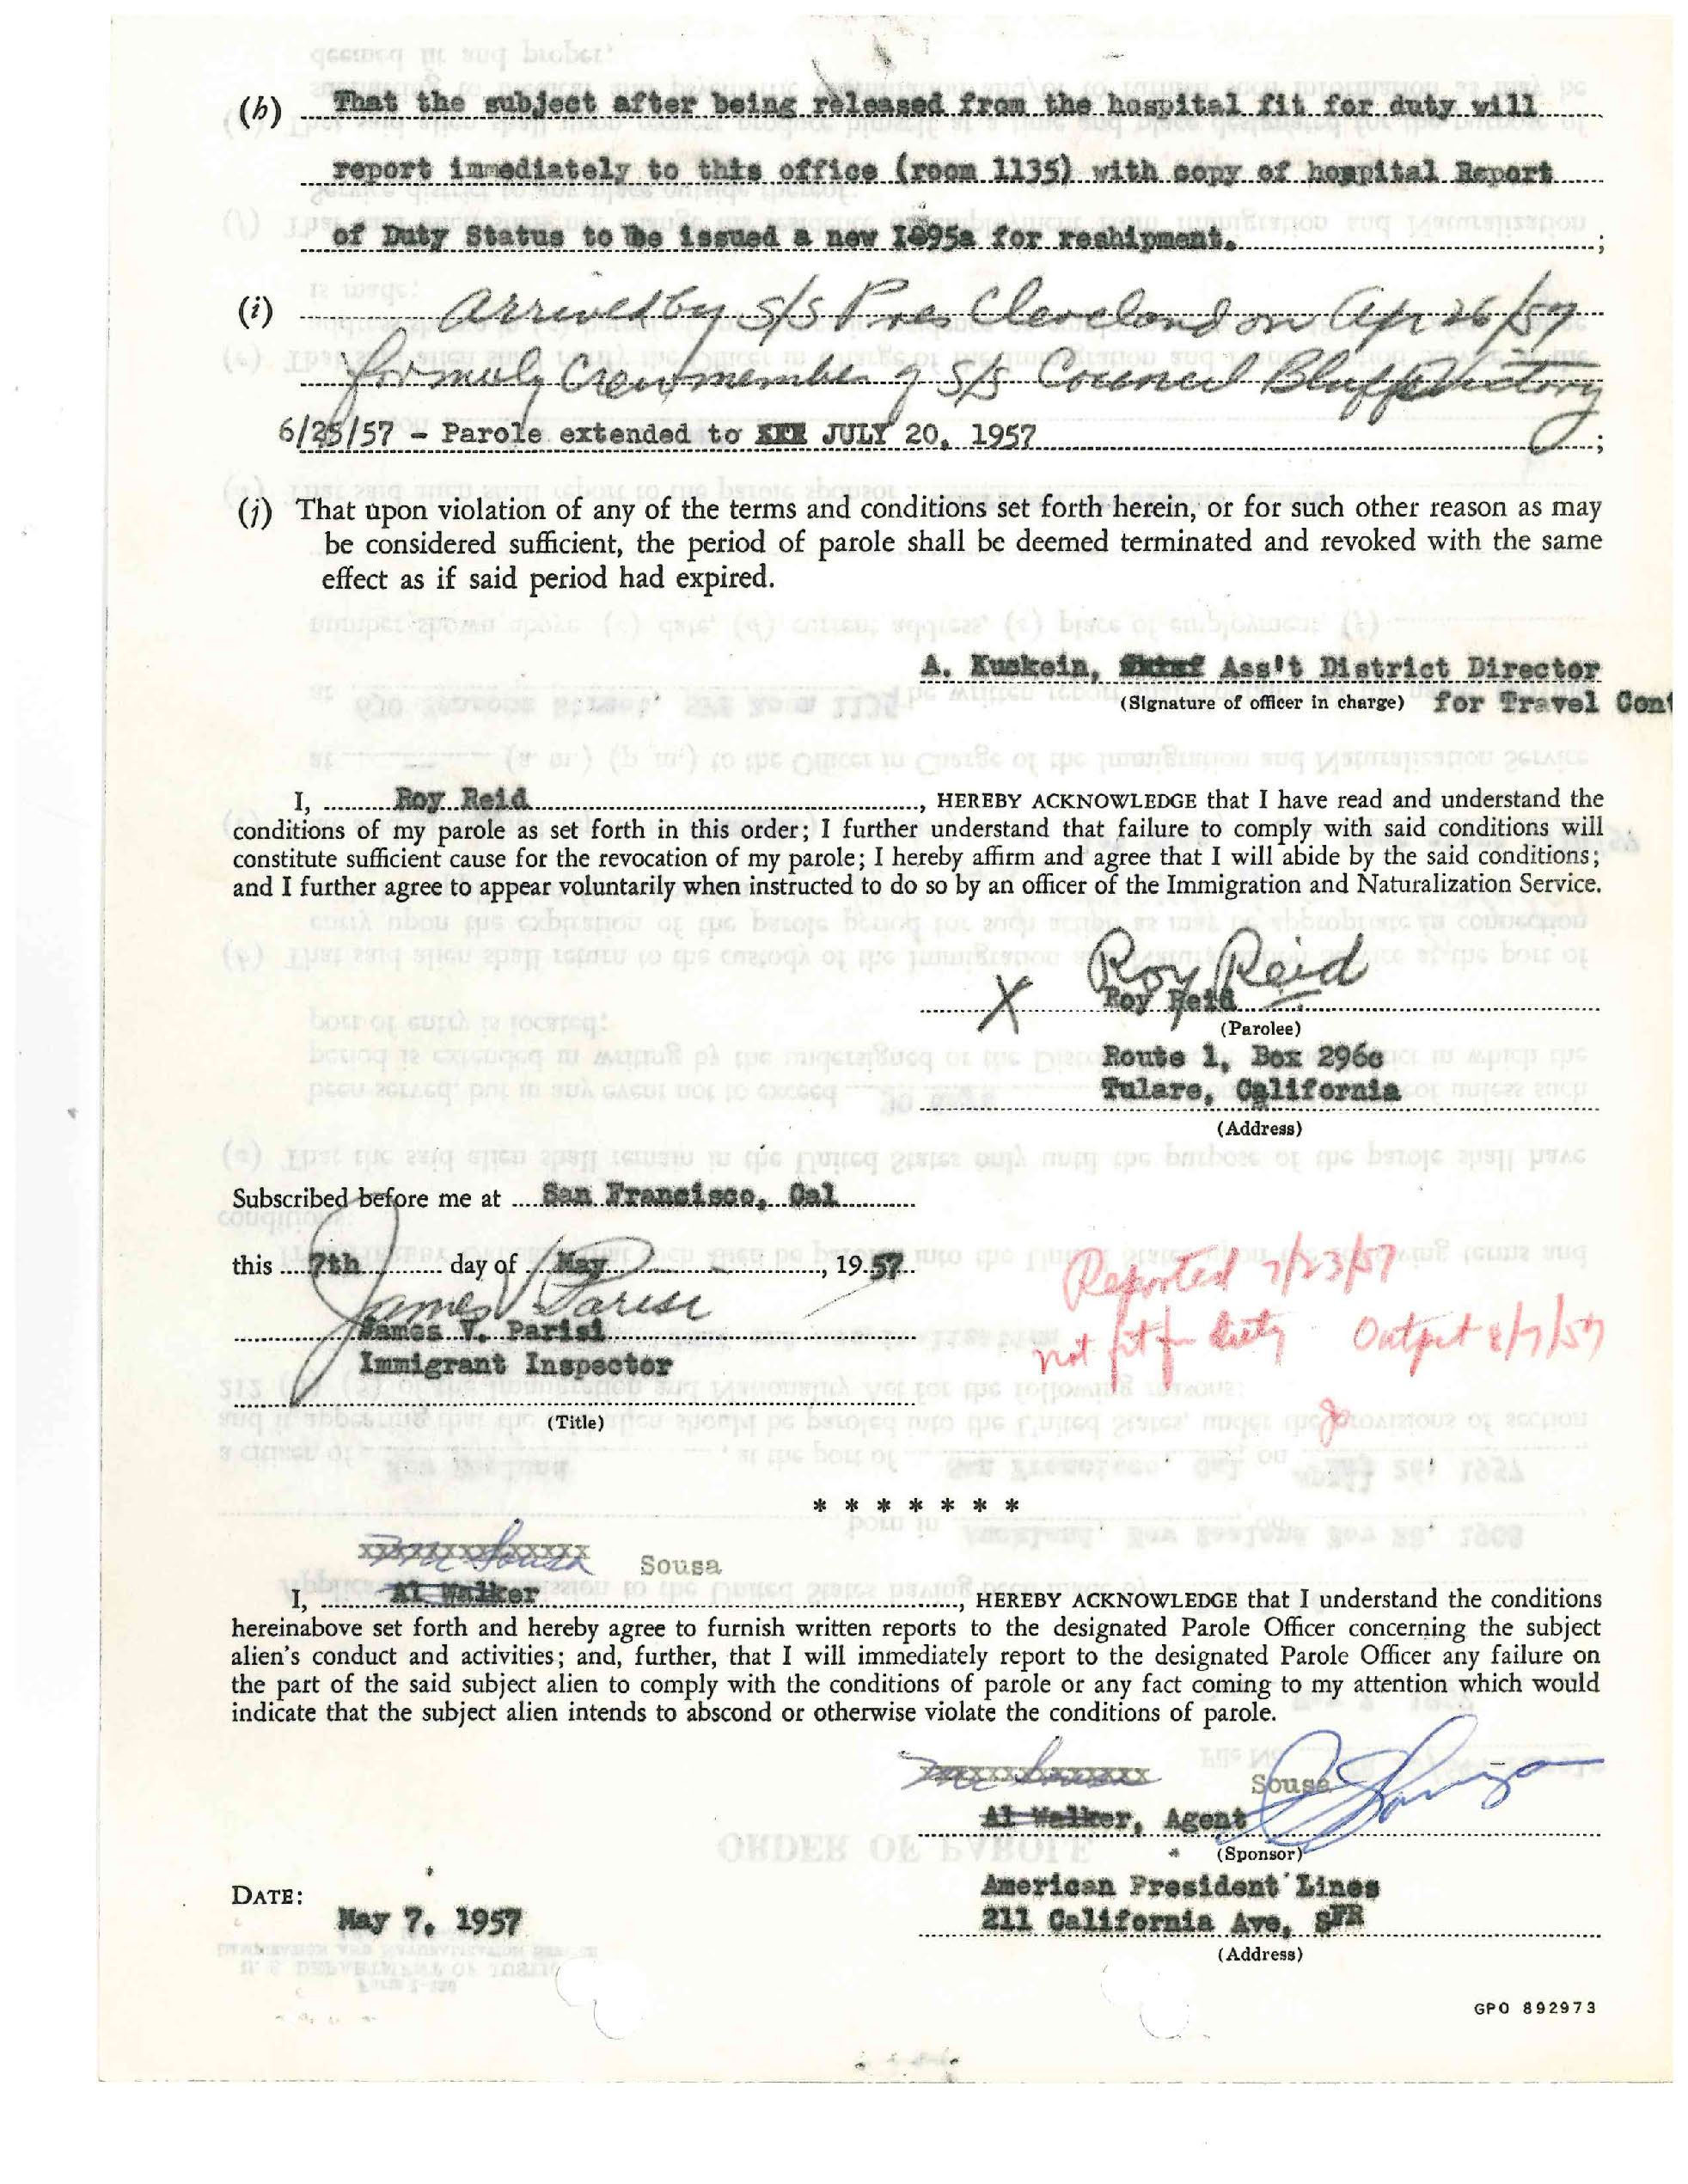 (h) That the subject after being released from the hospital fit for duty will
report immediately to this office (room 1135) with copy of hospital Report
of Duty Status to be issued a new I095a for reshipment. ;
(i) Arrived by S/S Pres Cleveland on Apr 26/57
formerly Crewmember of S/S Council Bluffs Victory
6/25/57 - Parole extended to XXX JULY 20, 1957 ;
(j) That upon violation of any of the terms and conditions set forth herein, or for such other reason as may
be considered sufficient, the period of parole shall be deemed terminated and revoked with the same
effect as if said period had expired.
A. Kuckein, Ass't District Director
(Signature of officer in charge) for Travel Cont
I, Roy Reid, HEREBY ACKNOWLEDGE that I have read and understand the
conditions of my parole as set forth in this order; I further understand that failure to comply with said conditions will
constitute sufficient cause for the revocation of my parole; I hereby affirm and agree that I will abide by the said conditions;
and I further agree to appear voluntarily when instructed to do so by an officer of the Immigration and Naturalization Service.
Roy Reid
X Roy Reid
(Parolee)
Route 1, Box 296c
Tulare, California
(Address)
Subscribed before me at San Francisco, Cal
this 7th day of May, 1957
James V. Parisi
James V. Parisi
Immigrant Inspector
(Title)
Reported 7/23/57
not fit for duty Outpt 8/7/57
* * * * * * *
Mr Sousa Sousa
I, Al Walker, HEREBY ACKNOWLEDGE that I understand the conditions
hereinabove set forth and hereby agree to furnish written reports to the designated Parole Officer concerning the subject
alien's conduct and activities; and, further, that I will immediately report to the designated Parole Officer any failure on
the part of the said subject alien to comply with the conditions of parole or any fact coming to my attention which would
indicate that the subject alien intends to abscond or otherwise violate the conditions of parole.
Mr Sousa Sousa
Al Walker, Agent
(Sponsor)
American President Lines
211 California Ave, SFR
(Address)
DATE:
May 7, 1957
GPO 892973